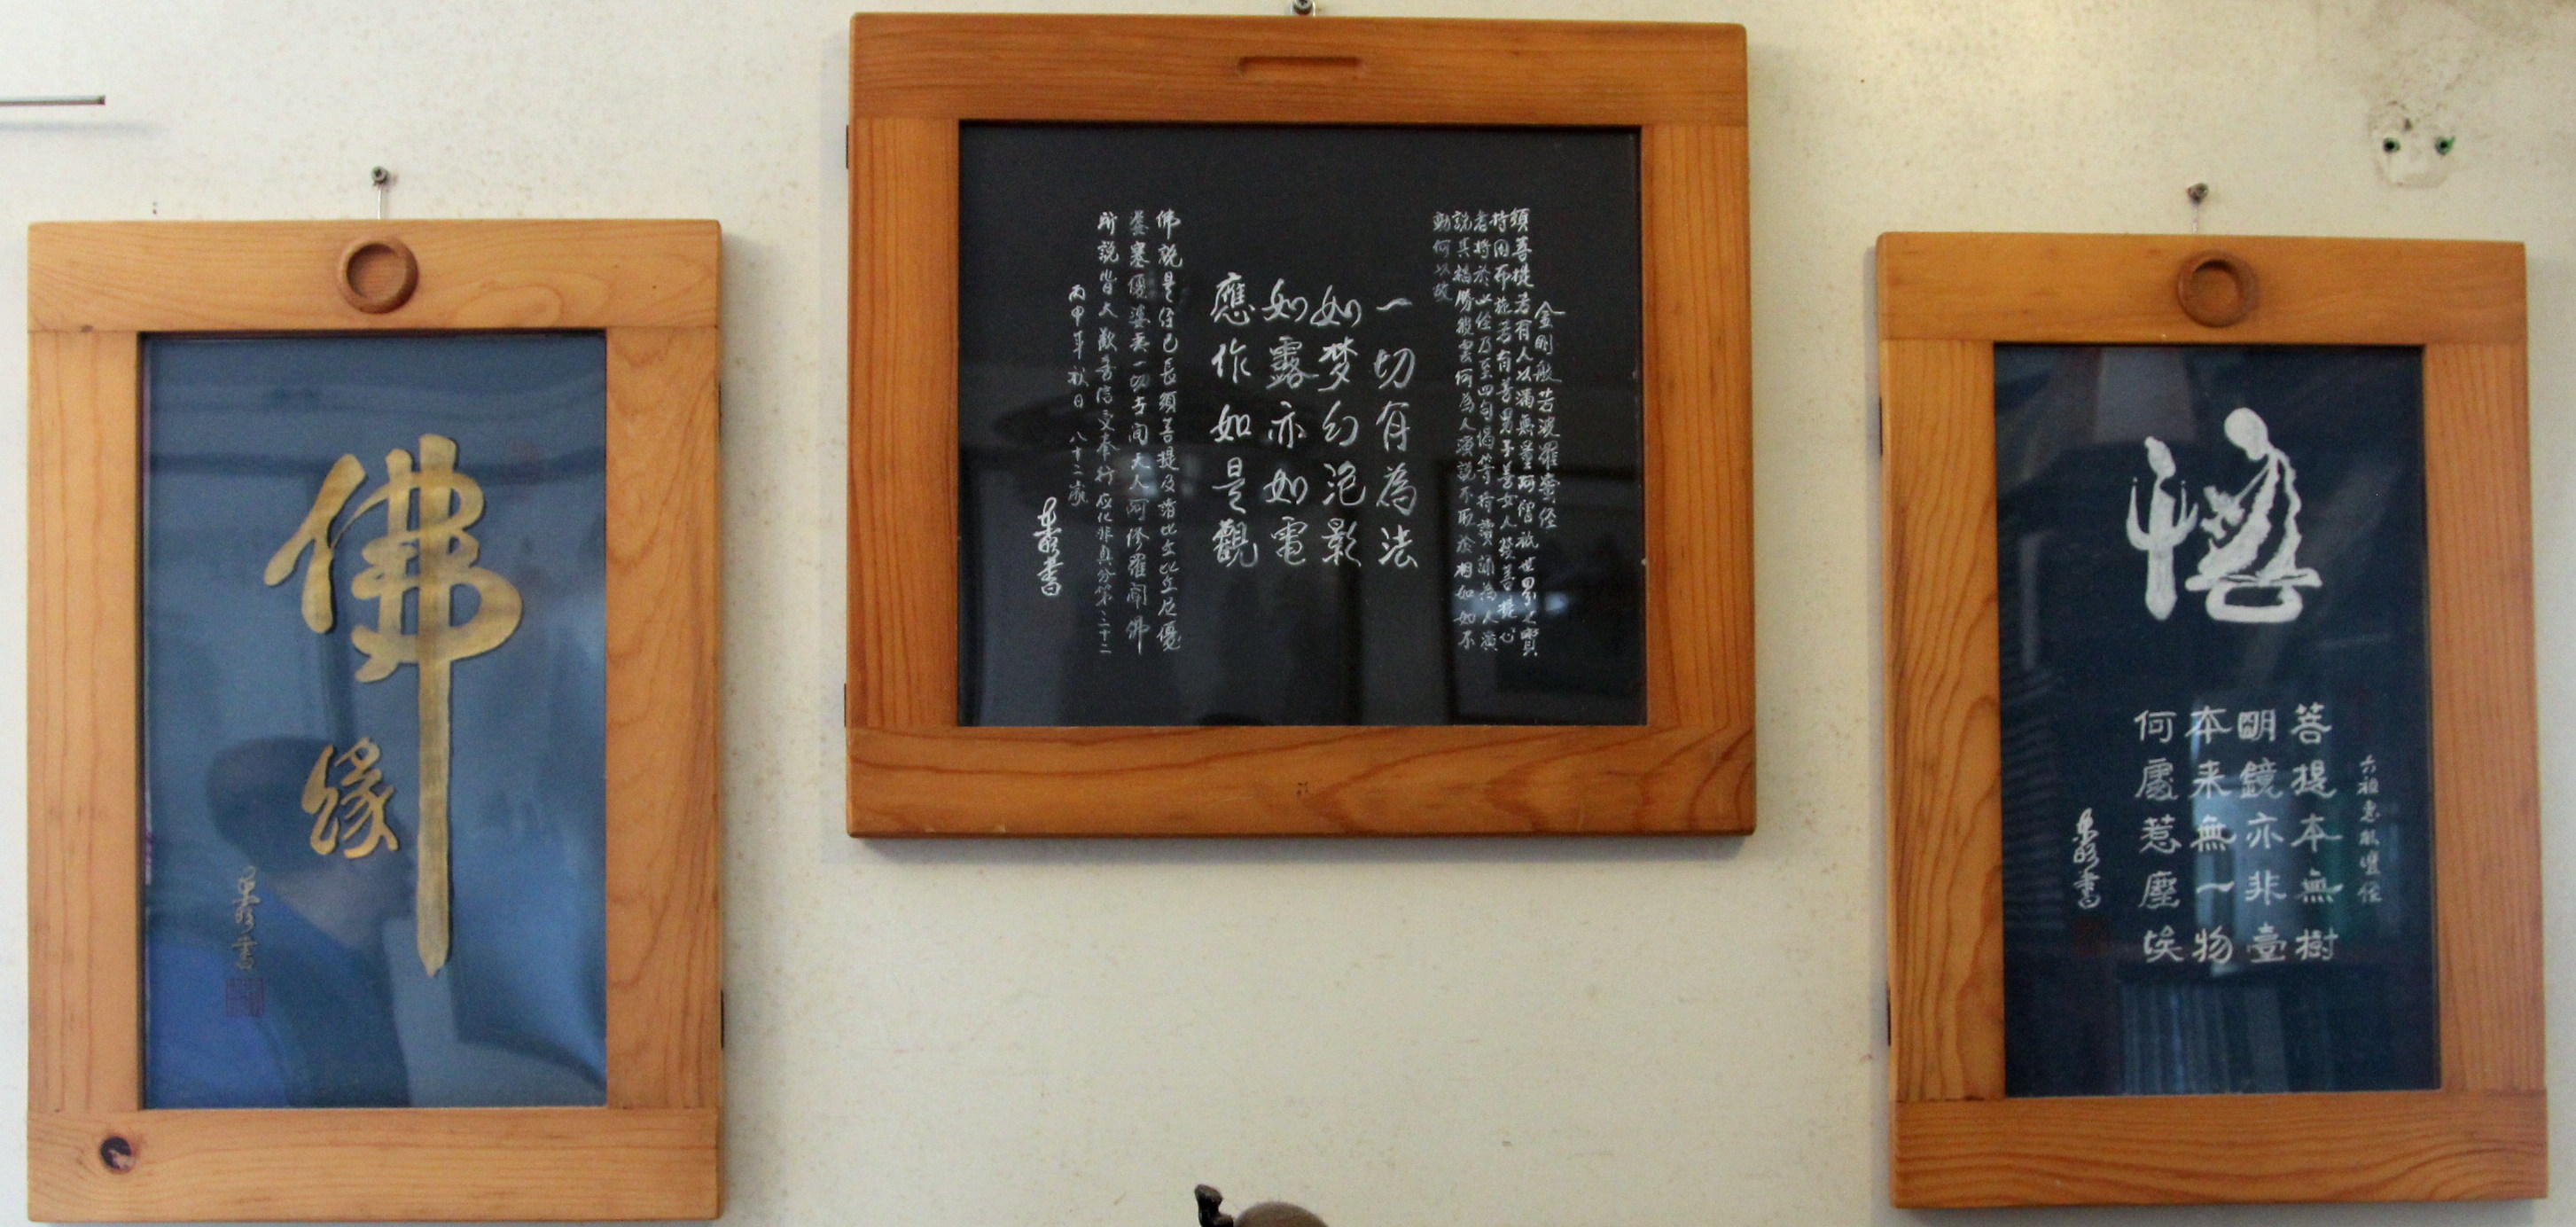 佛緣
金剛般若波羅蜜经
須菩提若有人以滿無量阿僧祇世界之寶
持用布施若有善男子善女人發菩提心
者持於此经乃至四句偈等持讀誦為人演
說其福勝彼雲何為人演說不取於相如如不
動何以故
一切有為法
如梦幻泡影
如露亦如電
應作如是觀
佛說是经已長須菩提及諸比丘比丘尼優
婆塞優婆夷一切世间天人阿修羅聞佛
所説皆大歡喜信受奉行 应化非真分第三十二
丙申年秋日 八十二歲
悟
六祖惠能壇经
菩提本無樹
明鏡亦非臺
本来無一物
何處惹塵埃